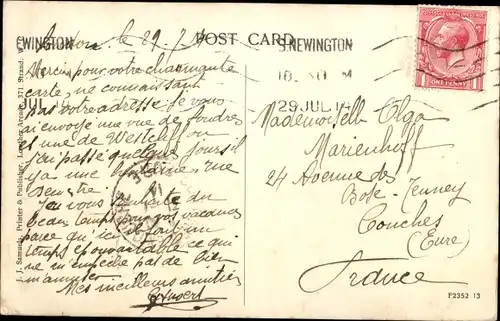 S.NEWINGTON
POST CARD.
29 JUL 14
ONE PENNY
London, le 29.7.14
Merci pour votre charmante
carte, ne connaissant
pas votre adresse je vous
ai envoyé une vue de Londres
et une de Westcliff ou
j'ai passé quelques jours il
y a une
Je vous souhaite du
beau temps pour vos vacances
parce qu'ici
temps est ce qui
ne m'empêche pas de bien
m'amuser
Mes meilleures amitiés
Mademoiselle Olga
Marienhoff
24 Avenue des
Bose-Tenney
Conches
(Eure)
France
J. J. Samuels, Printer & Publisher, Lowther Arcade, 371 Strand.
F2352 13